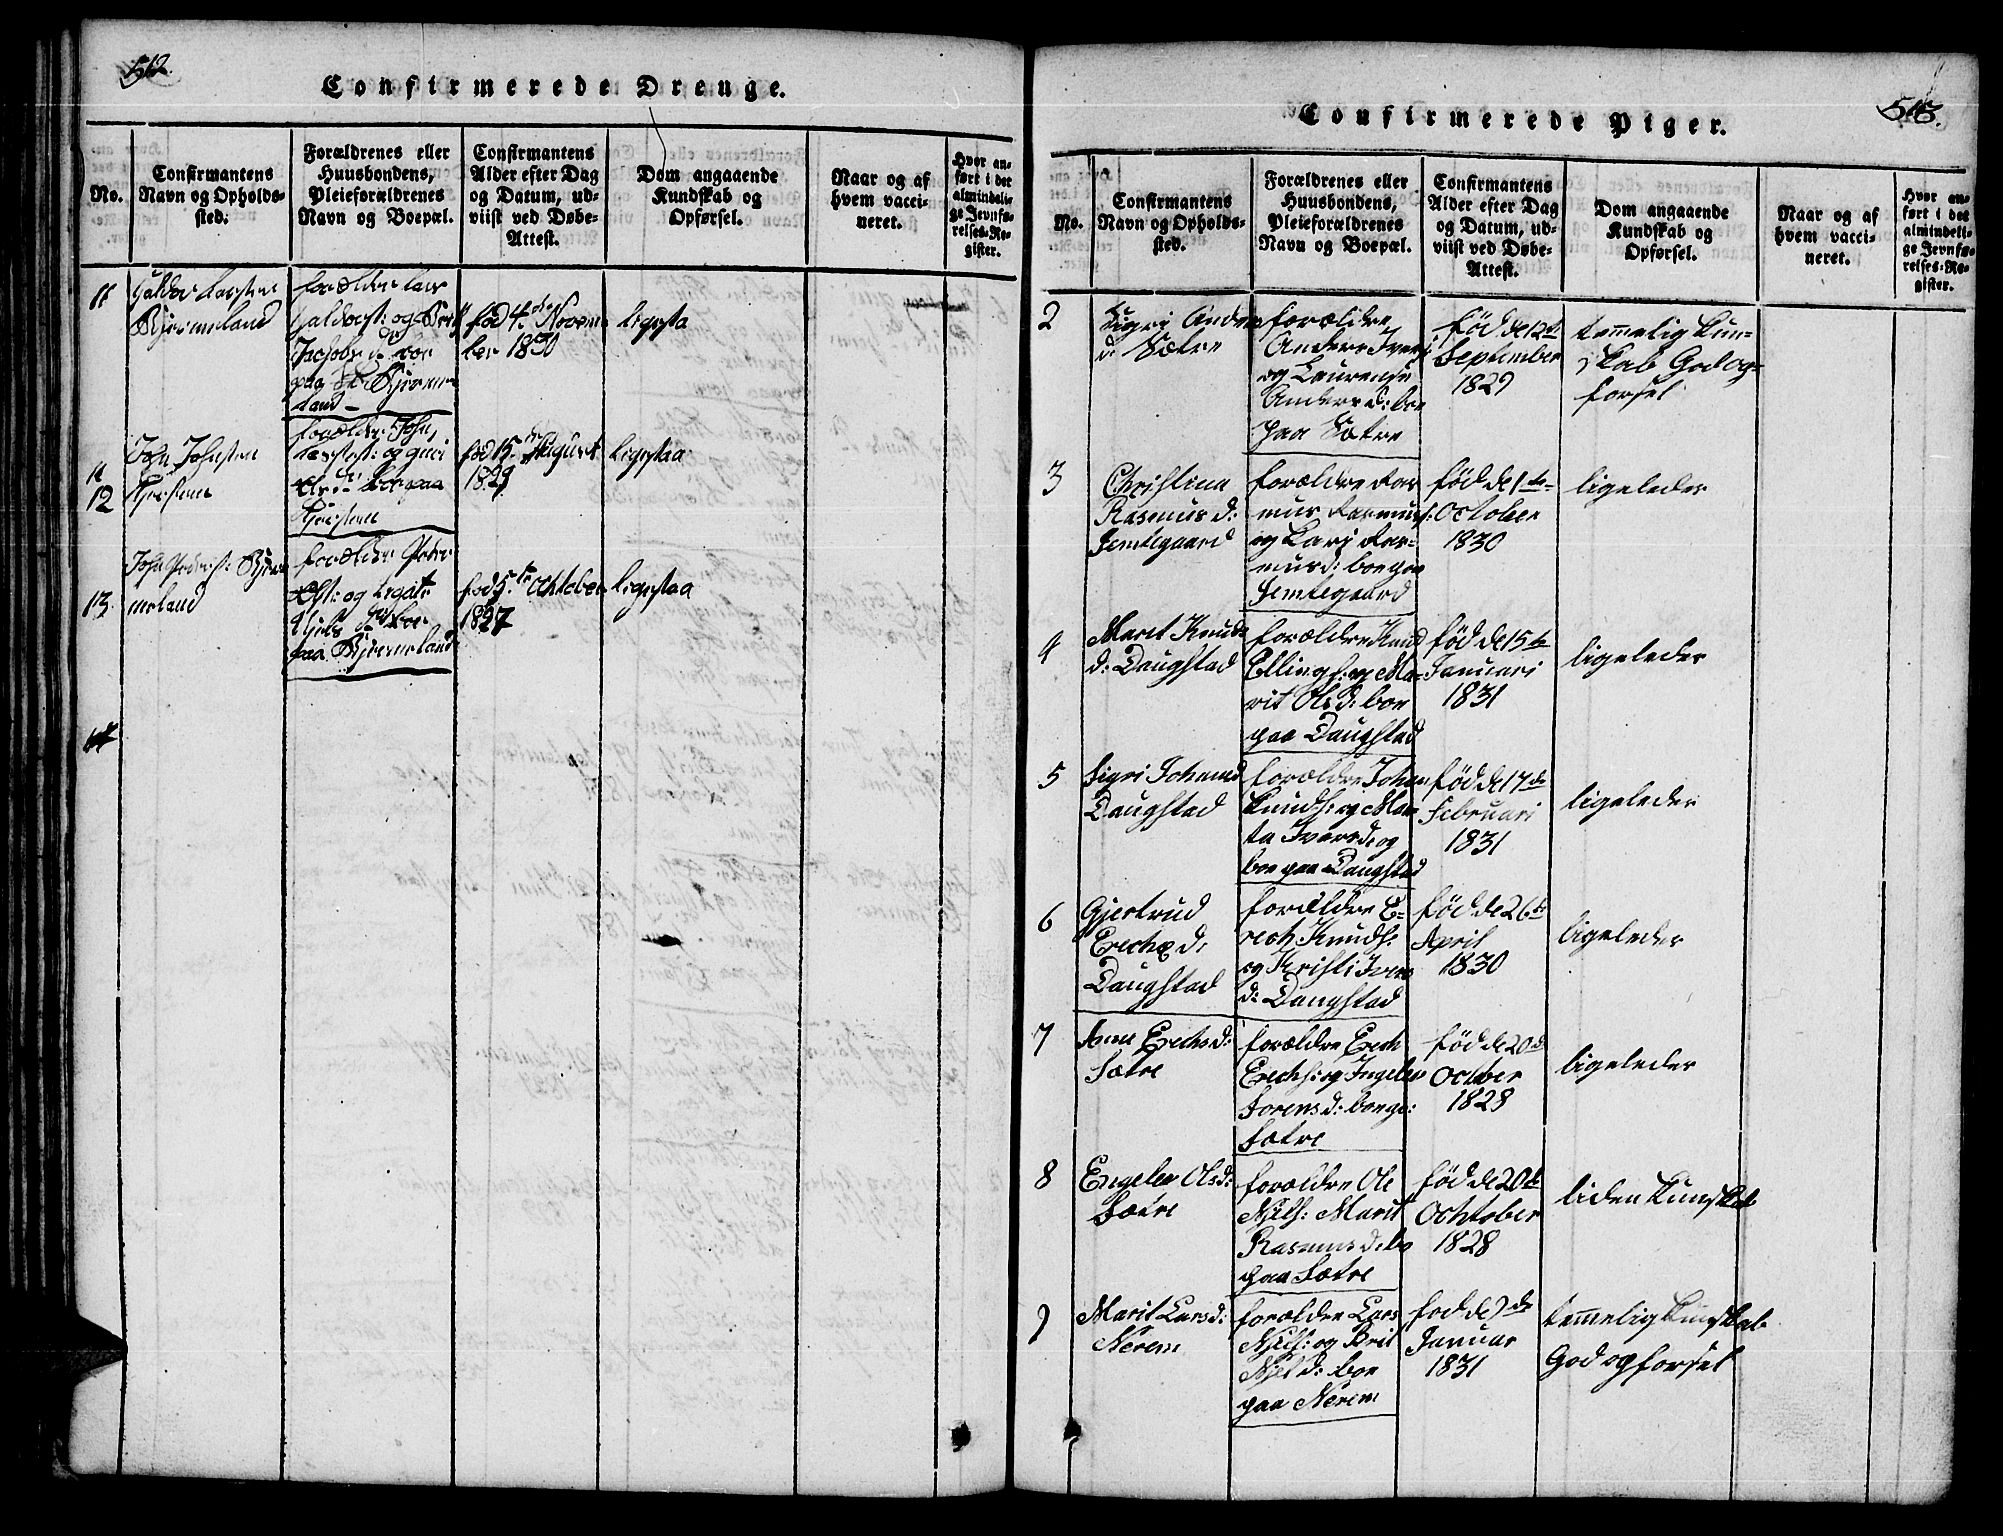 512.
Confirmerede Drenge.
No.
Confirmantens
Navn og Opholds-
sted.
Forældrenes eller
Huusbondens,
Pleieforældrenes
Navn og Boepæl.
Confirmantens
Alder efter Dag
og Datum, ud-
viist ved Døbe-
Attest.
Dom angaaende
Kundskab og
Opførsel.
Naar og af
hvem vacci-
neret.
Hvor an-
ført i det
almindeli-
ge Jevnfø-
relses-Re-
gister.
11
Haldor Larsten
Bjermeland
forældre Lars
Haldorst: og
Jacobsd: boe
paa Bjerme-
land
fød 4de Novem-
ber 1830
ligesaa
12
John Johnsten
forældre John
og Guri
boe paa
fød 15de August
1829
ligesaa
13.
John Peders: Bjerme-
meland
forældre Peder
og
boe
paa Bjermeland
fød 5te Ochtober
1827
ligesaa
Confirmerede Piger.
513.
No.
Confirmantens
Navn og Opholds-
sted.
Forældrenes eller
Huusbondens,
Pleieforældrenes
Navn og Boepæl.
Confirmantens
Alder efter Dag
og Datum, ud-
viist ved Døbe-
Attest.
Dom angaaende
Kundskab og
Opførsel.
Naar og af
hvem vacci-
neret.
Hvor an-
ført i det
almindeli-
ge Jevnfø-
relses-Re-
gister.
2
Sigri Anders
d: Sætre
forældre
Anders Ivers:
og Laurense
Andersd: boe
paa Sætre
fød de 12te
September
1829
temelig Kun-
skab God og-
forsel
3
Christina
Rasmusd:
Jemtegaard
forældre Ras
mus Rasmuss:
og Kari Ras-
musd: boe paa
Jemtegaard
fød de 1te
October
1830
ligeleder
4
Marit Knud
d: Daugstad
forældre Knud
Ellingss: og Ma-
rit Olsd: boe
paa Daugstad
fød de 15te
Januari
1831
ligeleder
5
Sigri Johansd
Daugstad
forældre Johan
Knuds: og Mar-
ta Iversd: og
boe paa Daugstad
fød de 17de
Februari
1831
ligeleder
6
Gjertrud
Erechs d:
Daugstad
forældre E-
rech Knuds:
og Kristi Ivers
d: Daugstad
fød de 26de
April
1830
ligeleder
7
Anne Erechsd:
Sætre
forældre Erech
Erechs: og Ingeber
Sorensd: boe pa:
Sætre
fød de 20de
October
1828
ligeleder
8
Engeber Olsd:
Sætre
forældre Ole
Niels: Marit
Rasmusd: bo
paa Sætre
fød de 20de
Ochtober
1828
liden Kunskab
9
Marit Larsd:
Nerem
forældre Lars
Niels: og Brit
Nielsd: boe
paa Nerem
fød de 9de
Januar
1831
temmelig Kunskab
God og forsel